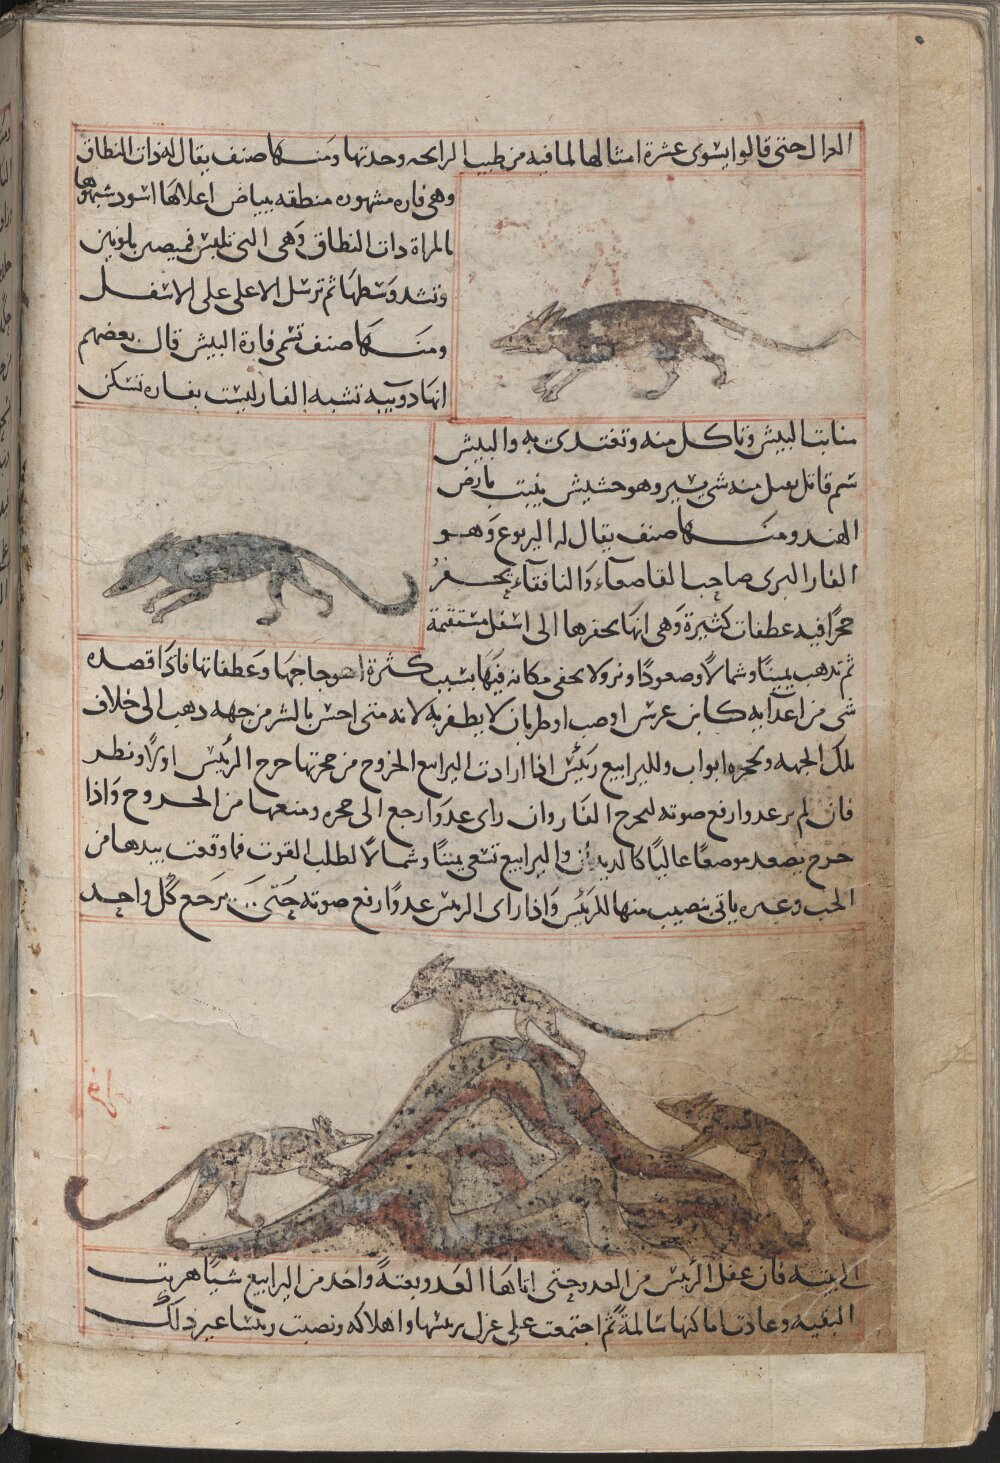 الغزال حتى قالوا يسوى عشرة امثالها لما فيه من طيب الرايحه وحدتها ومنها صنف يقال له ذات النطاق
وهي فاره مشهوره منطقه ببياض اعلاها اسود شبهوها
بالمراة ذات النطاق وهى التى تلبس قميصين بلونين
وتشد وسطها ثم ترسل الاعلى على الاسفل
ومنها صنف تسمى فارة البيش قال بعضهم
انها دويبه تشبه الفار ليست بفاره تسكن
منابت البيش وتاكل منه وتغتدى به والبيش
سم قاتل منه شى يسير وهو حشيش ينبت بارض
الهند ومنها صنف يقال له اليربوع وهو
الفار البرى صاحب القاصعآء والنافقآء يحفر
حجرًا فيه عطفات كثيرة وهى انها يحفرها الى اسفل مستقيمة
ثم تذهب يمينًا وشمالًا وصعودًا ونزولا يخفى مكانه فيها بسبب كثرة اعوجاجها وعطفاتها فاذا قصده
شى من اعدآيه كابن عرس او ضب او ظربان لا يظفر به لانه متى احس بالشر من جهه ذهب الى خلاف
تلك الجهه ولحجره ابواب ولليرابيع رئيس اذا ارادت اليرابيع الخروج من حجرتها خرج الرئيس اولًا ونظر
فان لم ير عدوا رفع صوته ليخرج الفار وان راى عدوا رجع الى حجره ومنعها من الخروج واذا
خرج يصعد موضعًا عاليًا كالديدبان واليرابيع تسعى يمينًا وشمالًا لطلب القوت فما وقعت بيدها من
الحب وغيره ياتى بنصيب منها للرئيس واذا راى الريس عدوًا رفع صوته حتى يرجع كل واحد
الى بيته فان غفل الرئيس من العدو حتى اتاها العدو بغتةً واخذ من اليرابيع شيًا هربت
البقيه وعادت اماكنها سالمةً ثم اجتمعت على عزل ريسها واهلاكه ونصبت ريسا غير ذلك